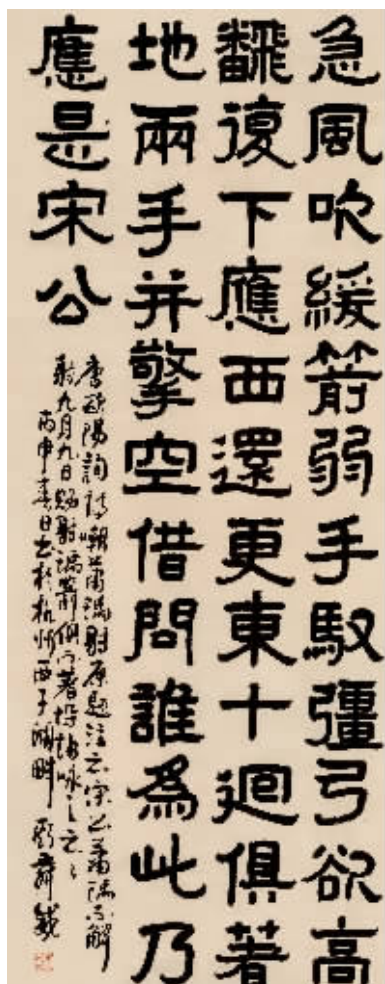 急風吹緩箭弱手馭彊弓欲高
飜復下應西還更東十迴俱著
地兩手并擎空借問誰為此乃
應是宋公
唐歐陽詢詩嘲蕭瑀射原題注云宋公蕭瑀不解
射九月九日賜射瑀箭俱不著垛詢咏之云〻
丙申春日書於杭州西子湖畔